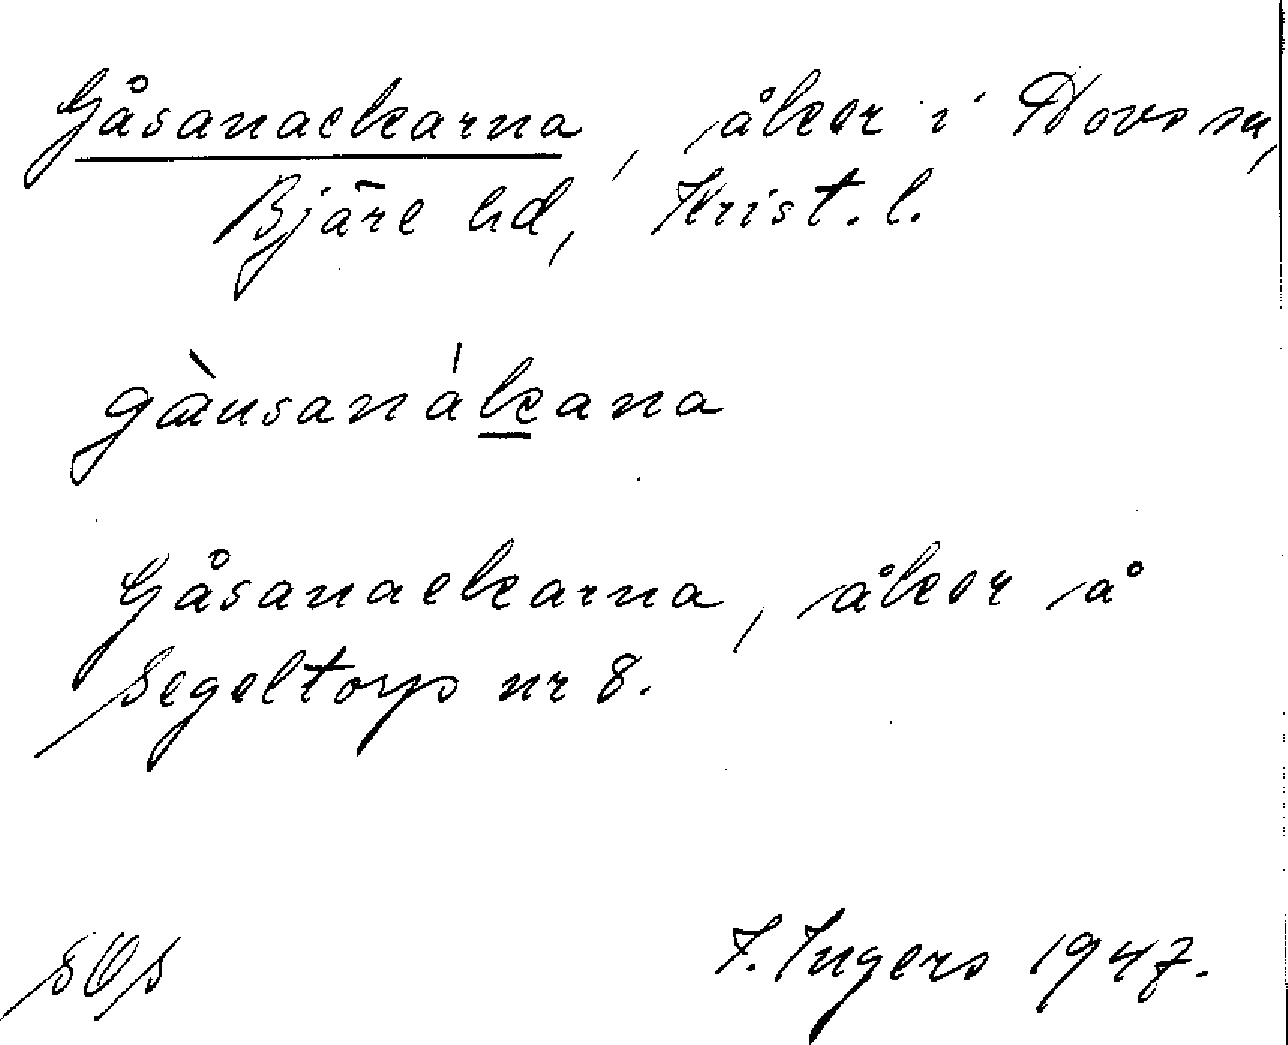 Gåsanackarna, åker i Hovs sn,
Bjäre hd, Krist. l.
gàusanákana
Gåsanackarna, åker å
Segeltorp nr 8.
I. Ingers 1947.